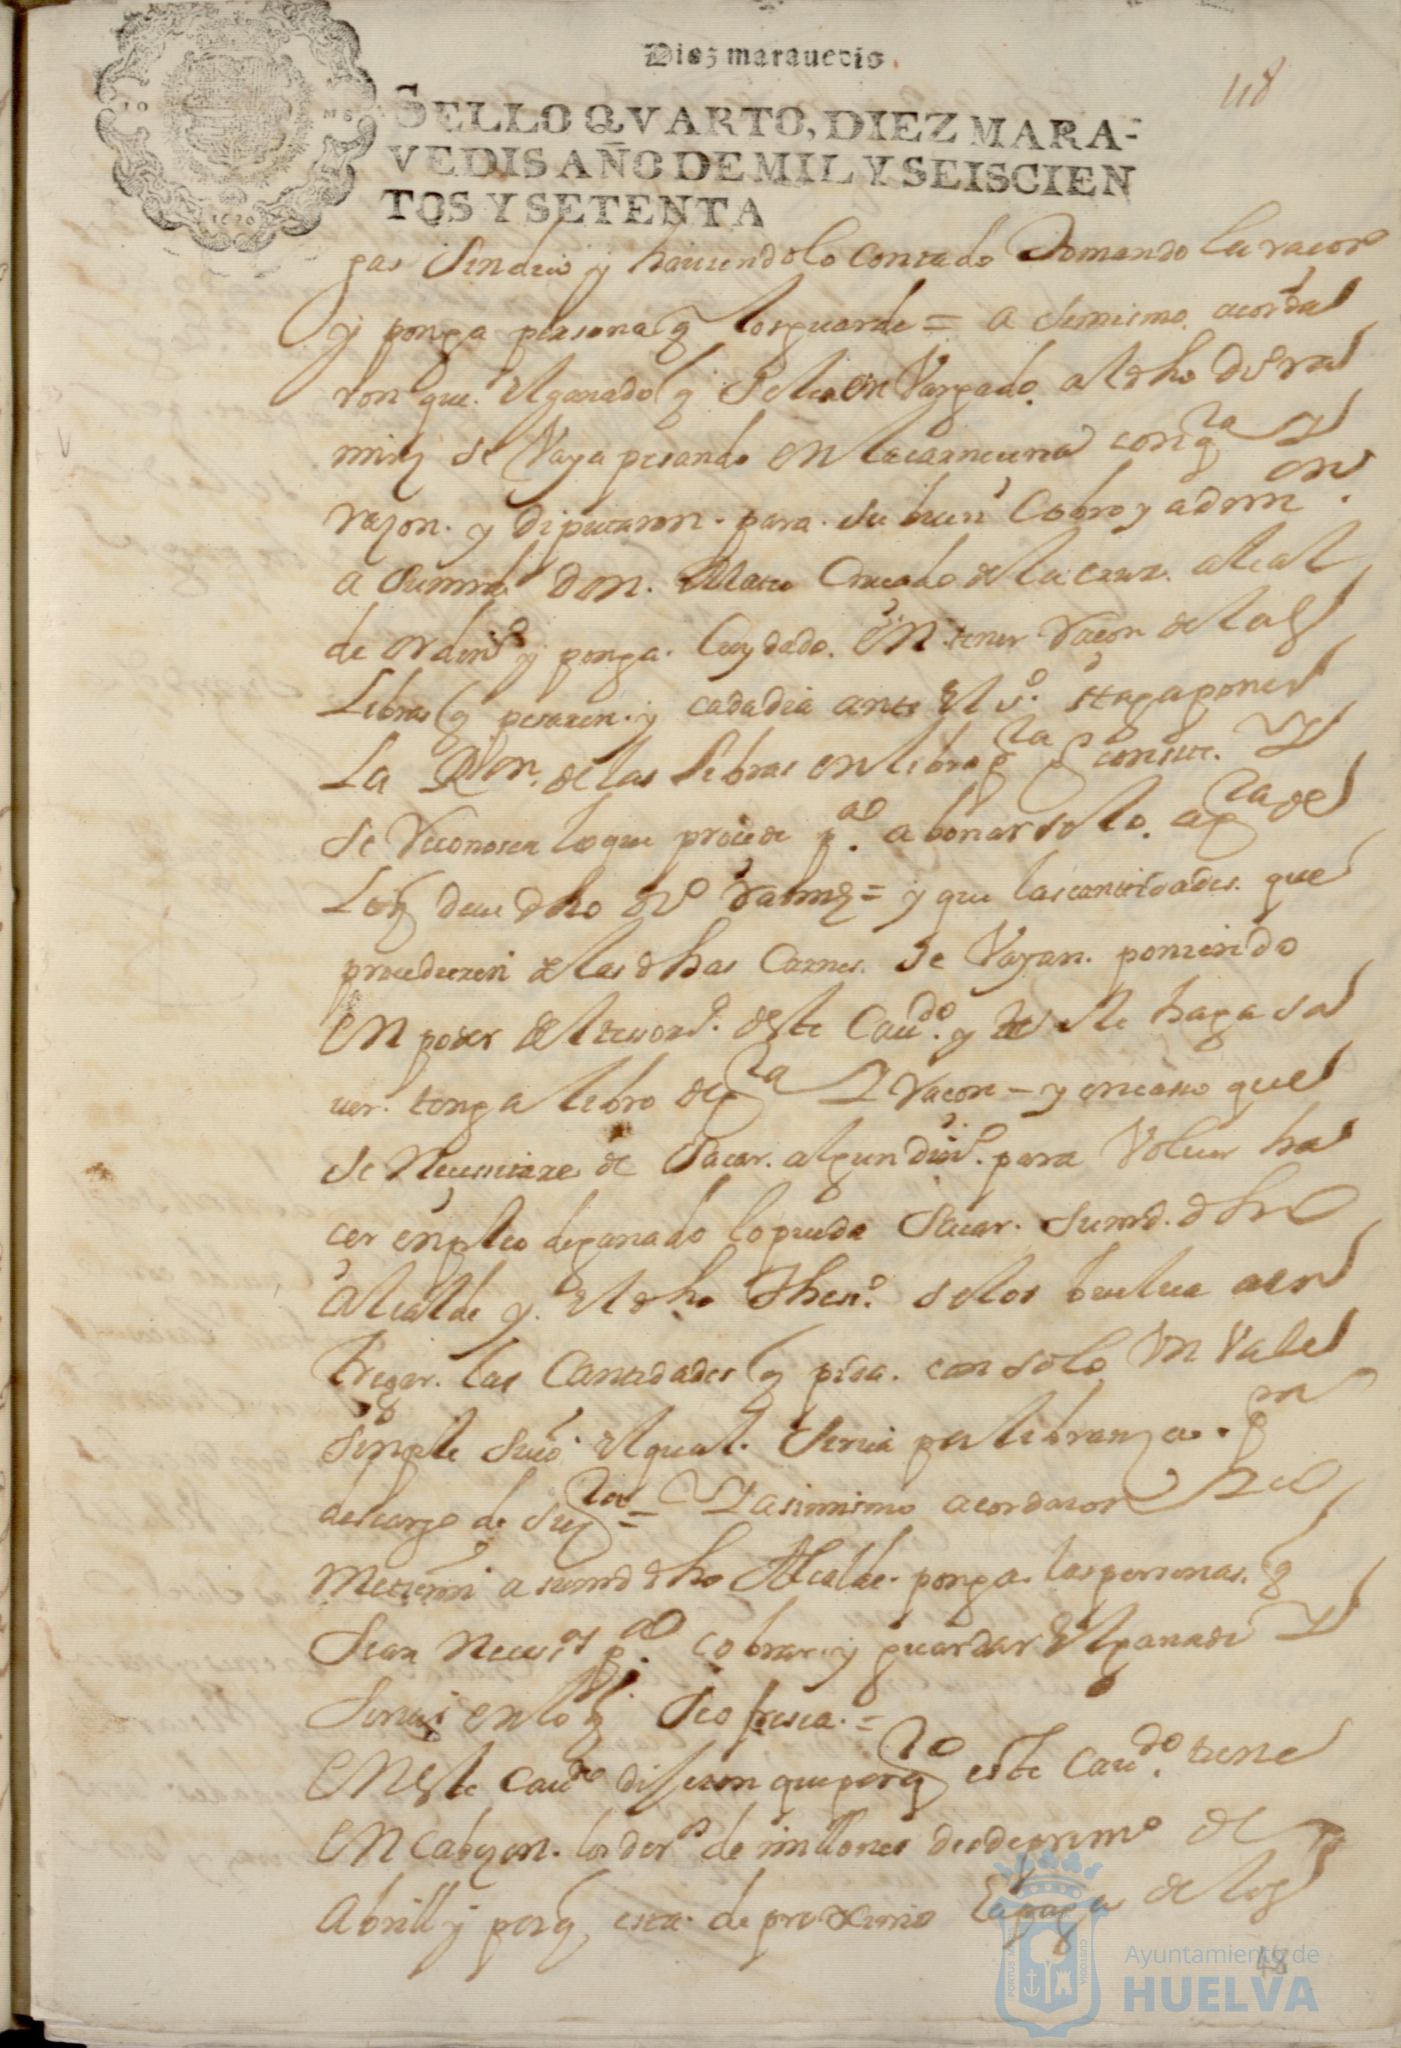 Diez marauedis.
118
SELLO QVARTO, DIEZ MARA-
VEDIS AÑO DE MIL Y SEISCIEN
TOS Y SETENTA
1670
y haciendolo contado tomando la racon
y ponga persona q los guarde = a simismo acorda
ron que el ganado q se le a en dho
se Vaya pesando en la carneceria con qta y
razon. y diputaron. para su buen Cobro y admon
a sumrd Don. Criado de la cruz. alcal
de ordino y ponga. Cuydado. En tener racon de las
Libras q pesaren. y cada dia ante el haga poner
La Rson. de las libras en libro pa q conste. Y
se Reconosca lo que procede pa abonarselo. a qta de
Lo q deue dho = y que las cantidades. que
procedieren de las dhas Carnes. Se Vayan. poniendo
En poder del tesoro. deste Caudo. y se le haga sa
uer. tenga libro de qta Y Racon – y en caso que
se Necesitare de Sacar. algun dino. para Voluer ha
cer enpleo de ganado lo pueda Sacar. Sumrd. dho
Alcalde y. el dho Theso. se los buelua a en
tregar. las Cantidades q pida. con solo Un Vale
simple suio. el qual. Seruia por libranza. pa
descargo de su qta = Y asimismo acordaron Y co
metieron a sumrd dho Alcalde. ponga. las personas. q
Sean Necesas pa cobrar. y guardar el ganado Y
en lo q Se ofresca. =
En este Caudo dixeron que por qto este Caudo. tiene
En Cabezon. los deros de millones desde primo de
Abrill y porq esta. de proximo la paga de los
48
Ayuntamiento de
HUELVA
PORTUS MARIS
CUSTODIA